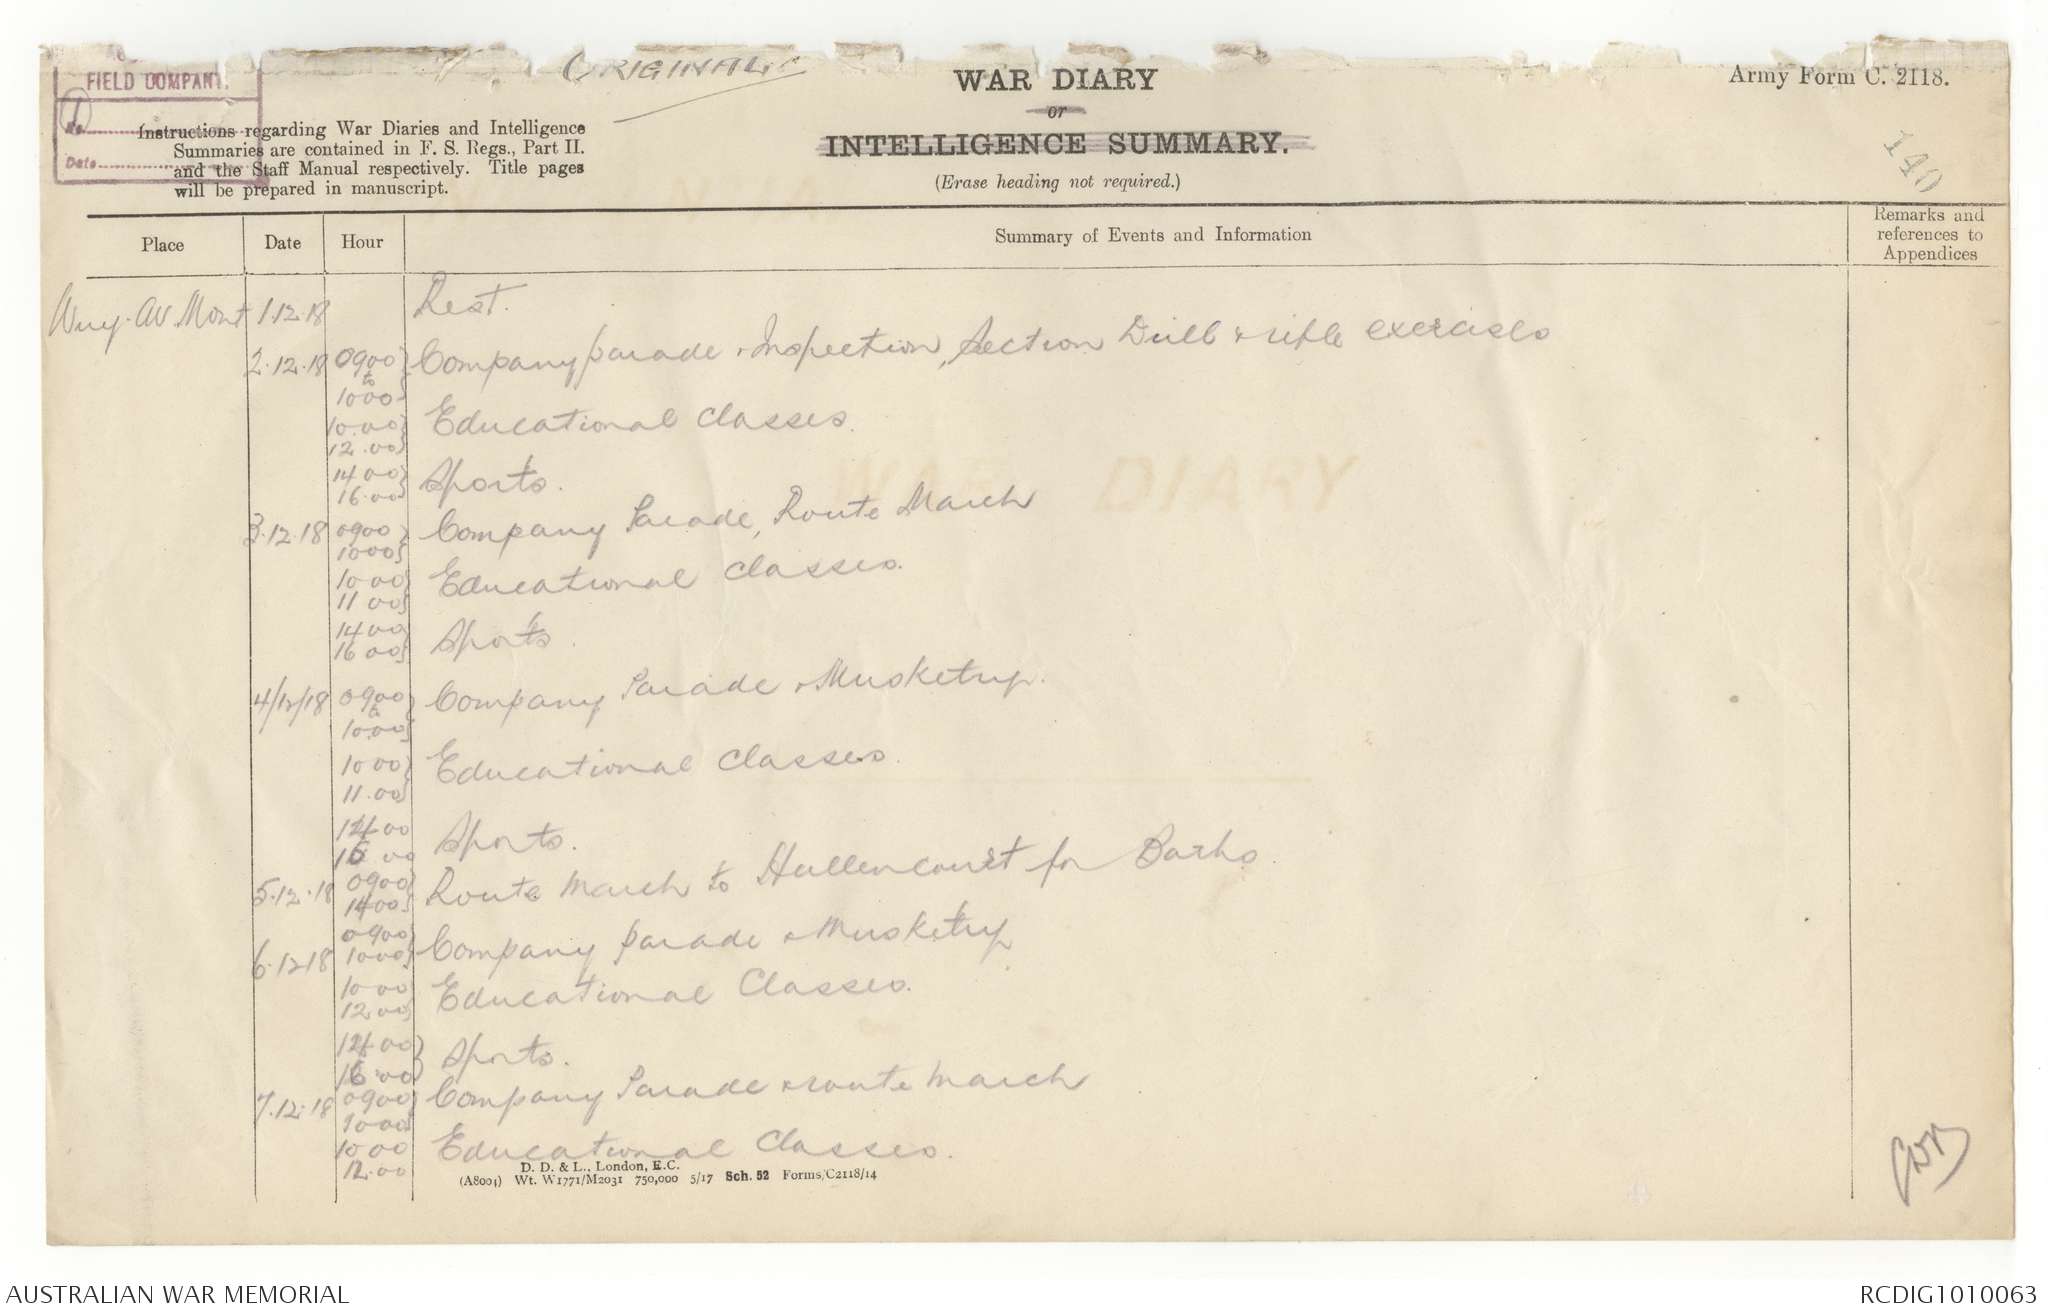 ORIGINAL
FIELD COMPANY.
No.
Date
Instructions regarding War Diaries and Intelligence
Summaries are contained in F. S. Regs., Part II.
and the Staff Manual respectively. Title pages
will be prepared in manuscript.
WAR DIARY
or
INTELLIGENCE SUMMARY.
(Erase heading not required.)
Army Form C. 2118.
140
Place Date Hour Summary of Events and Information Remarks and
references to
Appendices
Mont 1.12.18 Rest.
2.12.18 0900 Company parade & Inspection, Section Drill & rifle exercises
to
1000
10.00 Educational Classes.
12.00
1400 Sports.
16.00
3.12.18 0900 Company Parade, Route March
1000
1000 Educational Classes.
1100
1400 Sports.
1600
4/12/18 0900 Company Parade & Musketry.
to
10.00
1000 Educational Classes.
11.00
1400 Sports.
16 00
5.12.18 0900 Route March to Hallencourt for Baths.
1400
6.12.18 0900 Company parade & Musketry
1000
1000 Educational Classes.
12.00
14.00 Sports.
16.00
7.12.18 0900 Company Parade & route march
1000
1000 Educational Classes.
12.00
D. D. & L., London, E.C.
(A8004) Wt. W1771/M2031 750,000 5/17 Sch. 52 Forms/C2118/14
WAR DIARY
AUSTRALIAN WAR MEMORIAL
RCDIG1010063